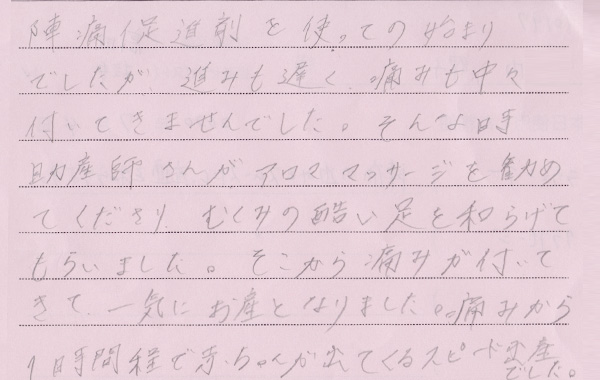 陣痛促進剤を使っての始まり
でしたが、進みも遅く、痛みも中々
付いてきませんでした。そんな時
助産師さんがアロママッサージを勧め
てくださり、むくみの酷い足を和らげて
もらいました。そこから痛みが付いて
きて、一気にお産となりました。痛みから
1時間程で赤ちゃんが出てくるスピード出産
でした。